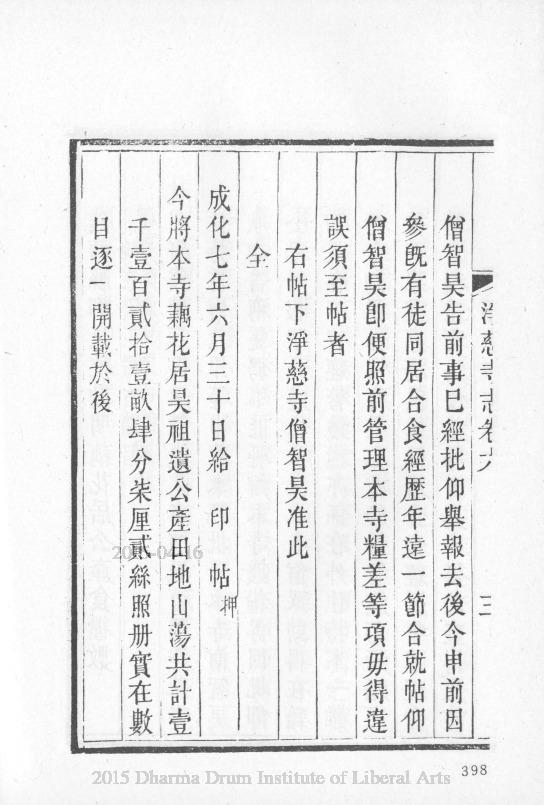 淨慈寺志卷六 三
僧智昊告前事已經批仰舉報去後今申前因
參旣有徒同居合食經歷年遠一節合就帖仰
僧智昊卽便照前管理本寺糧差等項毋得違
誤須至帖者
右帖下淨慈寺僧智昊准此
仝
成化七年六月三十日給 印 帖押
今將本寺藕花居昊祖遺公產田地山蕩共計壹
千壹百貳拾壹畝肆分柒厘貳絲照册實在數
目逐一開載於後
2015-04-16
398
2015 Dharma Drum Institute of Liberal Arts